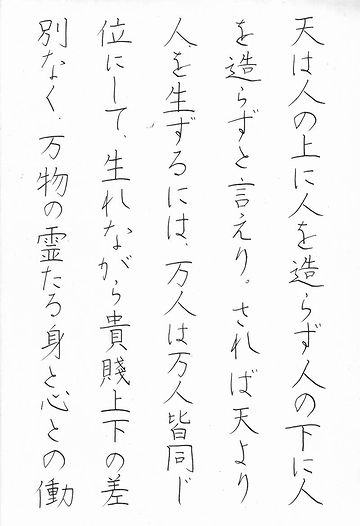 天は人の上に人を造らず人の下に人
を造らずと言えり。されば天より
人を生ずるには、万人は万人皆同じ
位にして、生れながら貴賤上下の差
別なく、万物の霊たる身と心との働